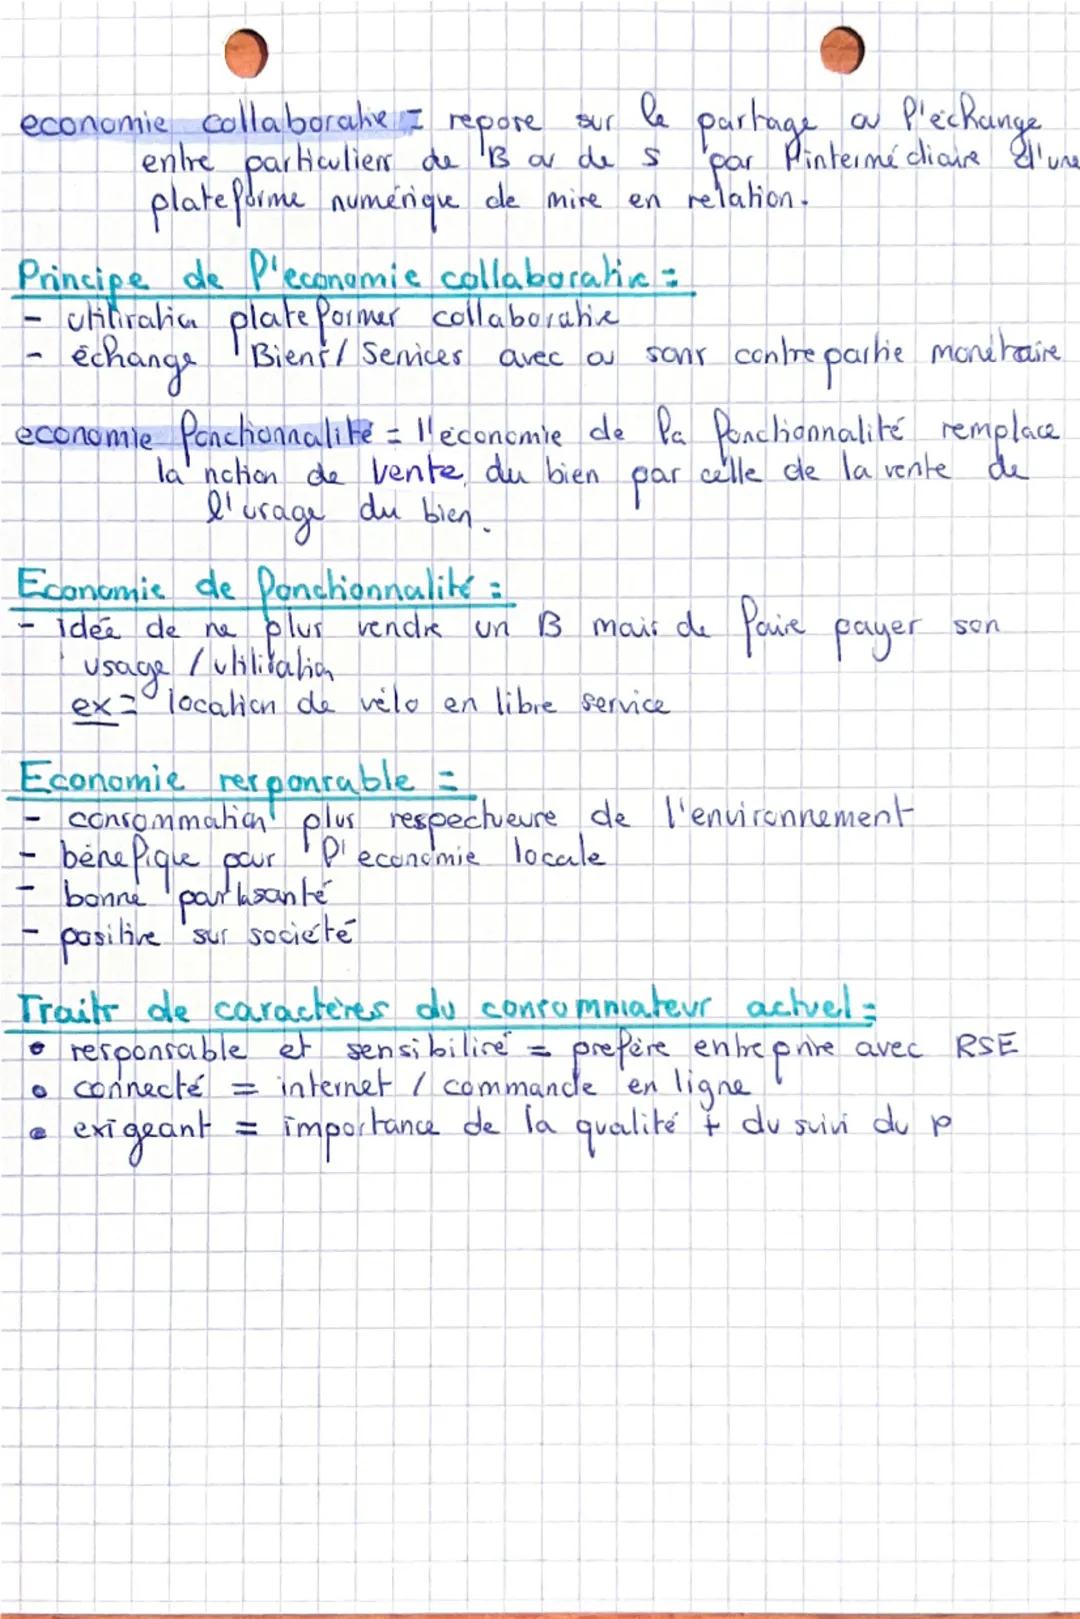 economie collaborative = repose sur le partage ou l'échange
entre particuliers de B ou de S par l'intermédiaire d'une
plateforme numérique de mise en relation.
Principe de l'economie collaborative =
- utilisation plateformes collaborative
- échange Biens / Services avec ou sans contrepartie monétaire
economie fonctionnalité = l'économie de la fonctionnalité remplace
la notion de vente du bien par celle de la vente de
l'usage du bien.
Economie de fonctionnalité =
- idée de ne plus vendre un B mais de faire payer son
usage / utilisation
ex = location de vélo en libre service
Economie responsable =
- consommation plus respectueuse de l'environnement
- bénéfique pour l'economie locale
- bonne pour la santé
- positive sur société
Traits de caractères du consommateur actuel =
• responsable et sensibilisé = préfère entreprise avec RSE
• connecté = internet / commande en ligne
• exigeant = importance de la qualité + du suivi du p